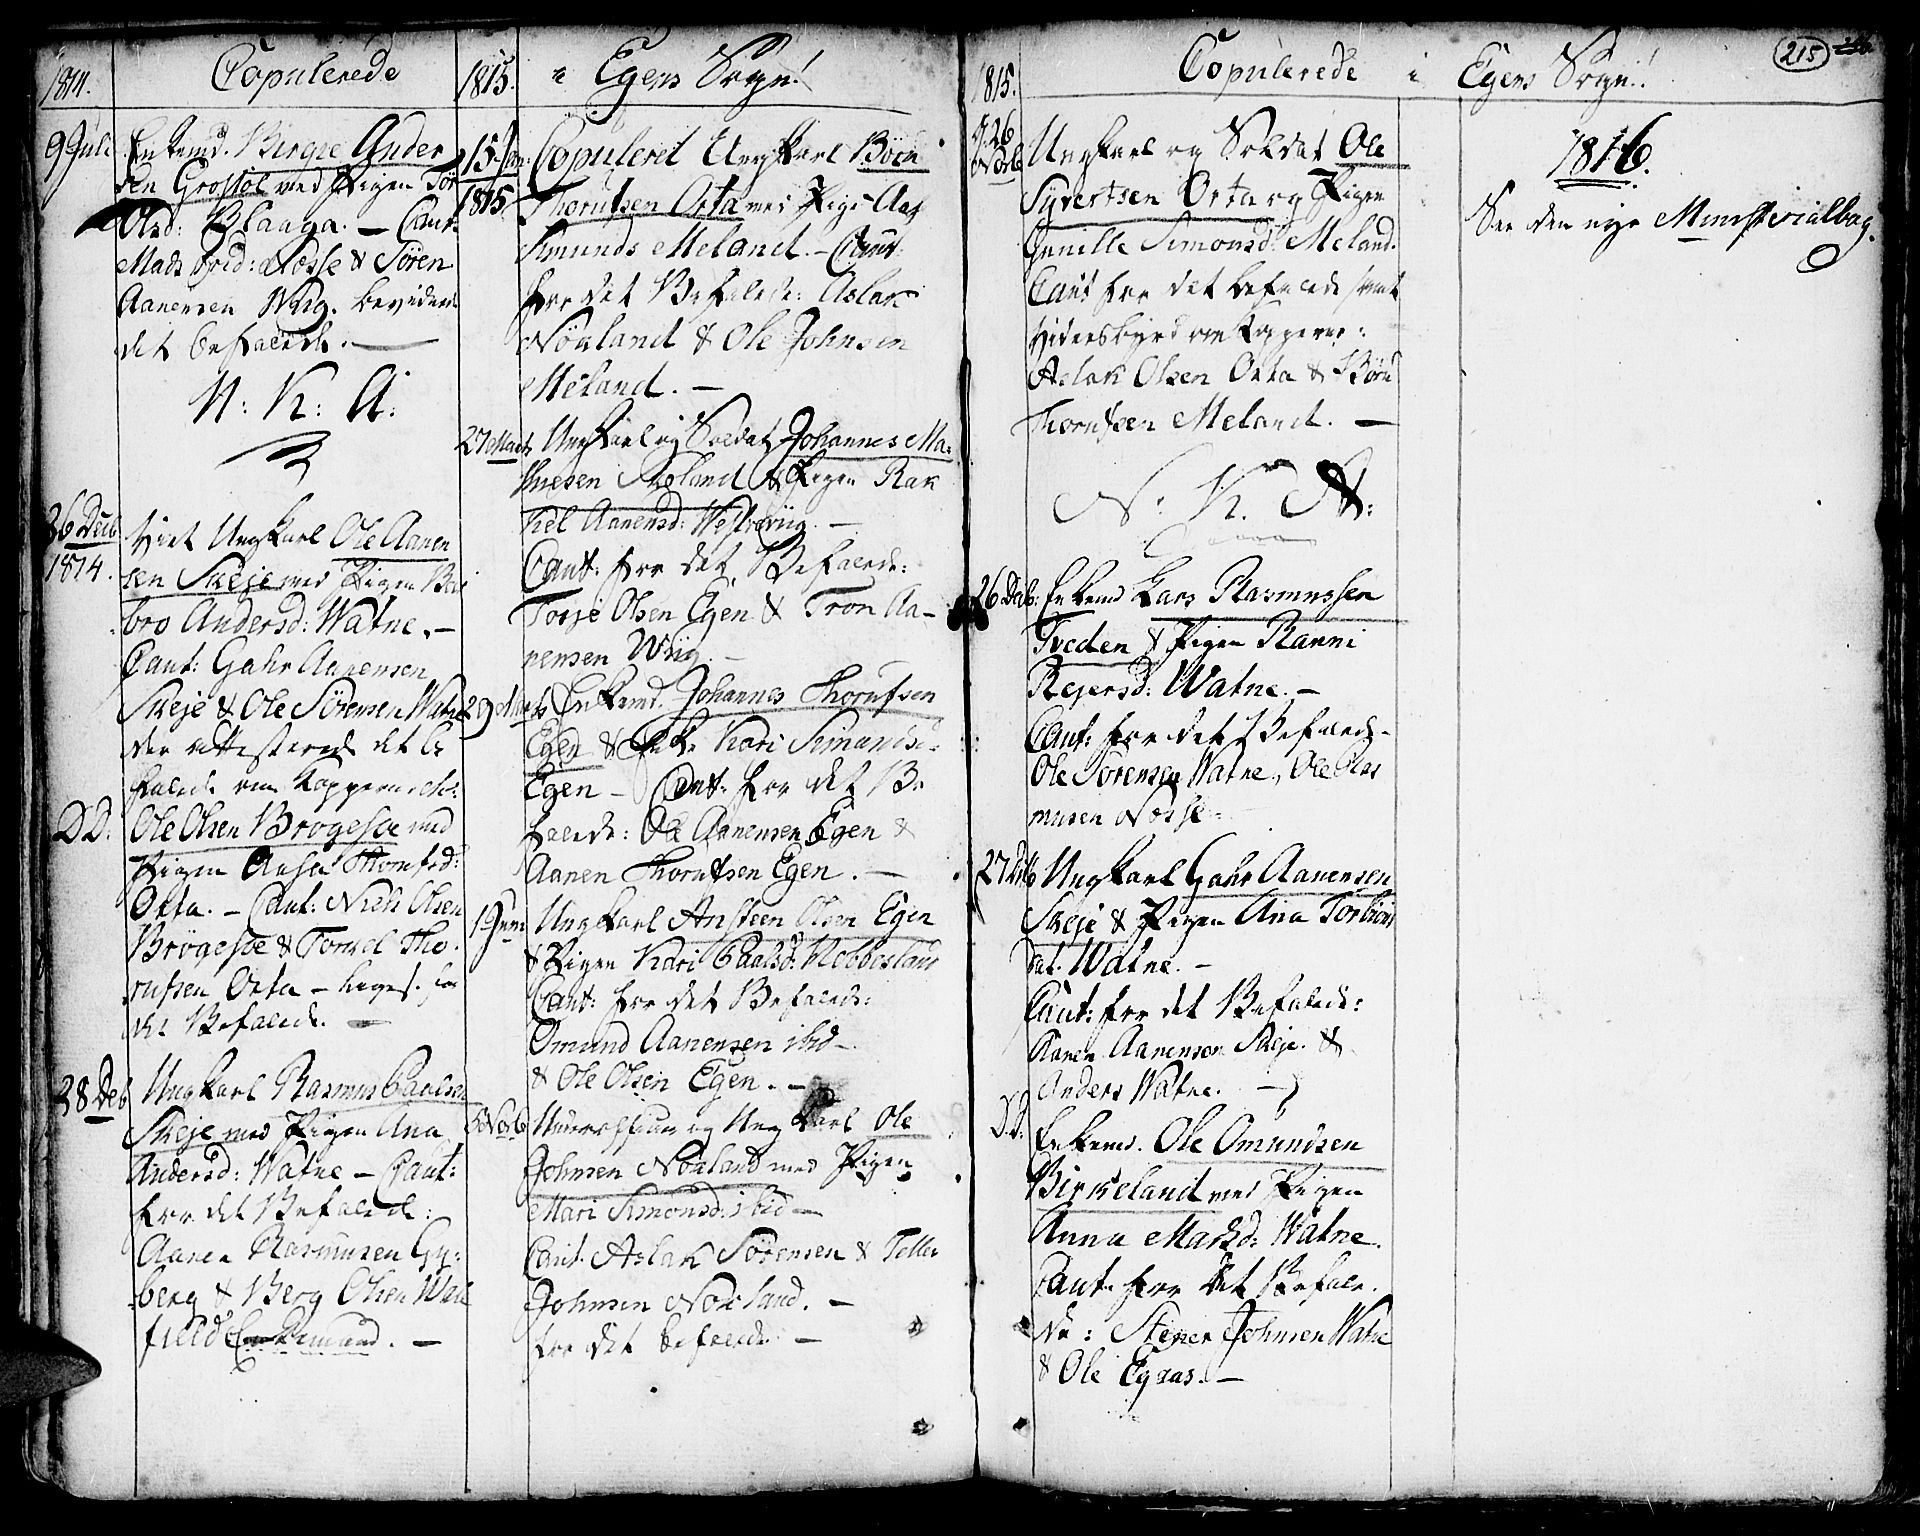 1814.
Copulerede
9 Juli
Enkemd. Birgie Ander
sen Grostøl med Pigen Tor
Olsd: Blaaga. — Caut:
Mads ibid: Næsse & Sören
Aanensen Wiig. bevidner
det befalede. —
N: K: A:
26 Decb
1814.
Viet Ungkarl Ole Aanen
sen Skeje med Pigen Bar
bro Andersd: Watne. —
Caut: Gahr Aanensen
Skeje & Ole Sörensen Watne
der attesterede det be
falede om Kopperne etc:
D.D.
Ole Olsen Brögesøe med
Pigen Aasa Thomasd:
Orta. — Caut: Niels Olsen
Brögesøe & Torkel Tho
rufsen Orta — for
det Befalede. —
28 Deb
Ungkarl Rasmus Paulsen
Skeje med Pigen Ana
Andersd: Watne — Caut:
for det Befalede:
Aanen Rasmusen Gy:
berg & Berg Olsen Wate
field Enkemand. —
1815.
i Egens Sogn!
15 Jan:
1815.
Copuleret Ungkarl Börn
Thorufsen Orta med Pige Aas
Simunds Meland. — Caut:
for det Befalede: Aslak
Növland & Ole Johnsen
Meland. —
27 Marts
Ungkarl og Soldat Johannes Ma-
thiesen Roland & Pigen Rak
kel Aanensd: Westrewiig. —
Caut: for det Befalede:
Torje Olsen Egen & Tron Aa-
nensen Wiig. —
29 Marts
Enkemd. Johannes Thorufsen
Egen & Enke Kari Simonds:
Egen — Caut: for det Be
falede: Ole Aanensen Egen &
Aanen Thorufsen Egen. —
1 Juni
Ungkarl Ansteen Olsen Egen
& Pigen Kari Paalsd: Nebbesland
Caut: for det Befalede:
Omund Aanensen ibid —
& Ole Olsen Egen. —
6 Novb
og Ungkarl Ole
Johnsen Növland med Pigen
Mari Simonsd: ibid —
Caut. Aslak Sörensen & Tellev
Johnsen Növland. —
for det befalede —
215
1815.
Copulerede i Egens Sogn!
d. 26
Novb
Ungkarl og Soldat Ole
Syvertsen Orta og Pigen
Gunille Simonsd: Meland.
Caut for det befalede samt
Vidnesbyrd om Kopperne:
Aslak Olsen Orta & Börn
Thorufsen Meland. —
N: K. A:
26 Deb:
Enkemd Lars Rasmussen
Tveden & Pigen Ranni
Rejersd: Watne. —
Caut: for det Befalede
Ole Sörensen Watne, Ole Ras
musen Næsse
27 Deb
Ungkarl Gahr Aanensen
Skeje & Pigen Ana Torbiörns
dat. Watne. —
Caut: for det Befalede:
Aanen Aanensen Skeje. &
Anders Watne. —
D.D:
Enkemd. Ole Omundsen
Birkeland med Pigen
Anna Marksd: Watne.
Caut: for det Befale
de: Stener Johnsen Watne
& Ole Egaas. —
1816.
See den nye Ministerialbog.